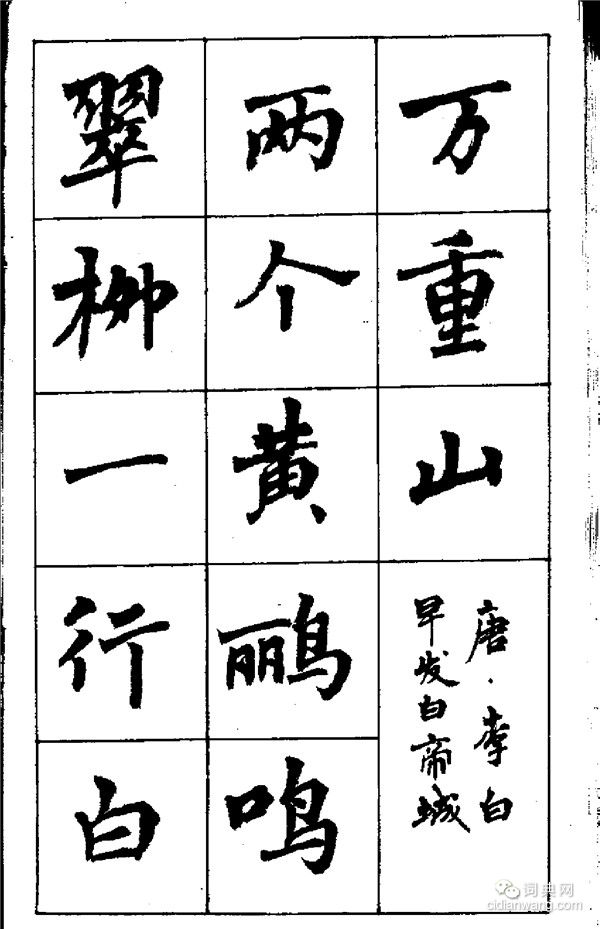 万重山
唐·李白
早发白帝城
两个黄鹂鸣
翠柳一行白
词典网
cidianwang.com